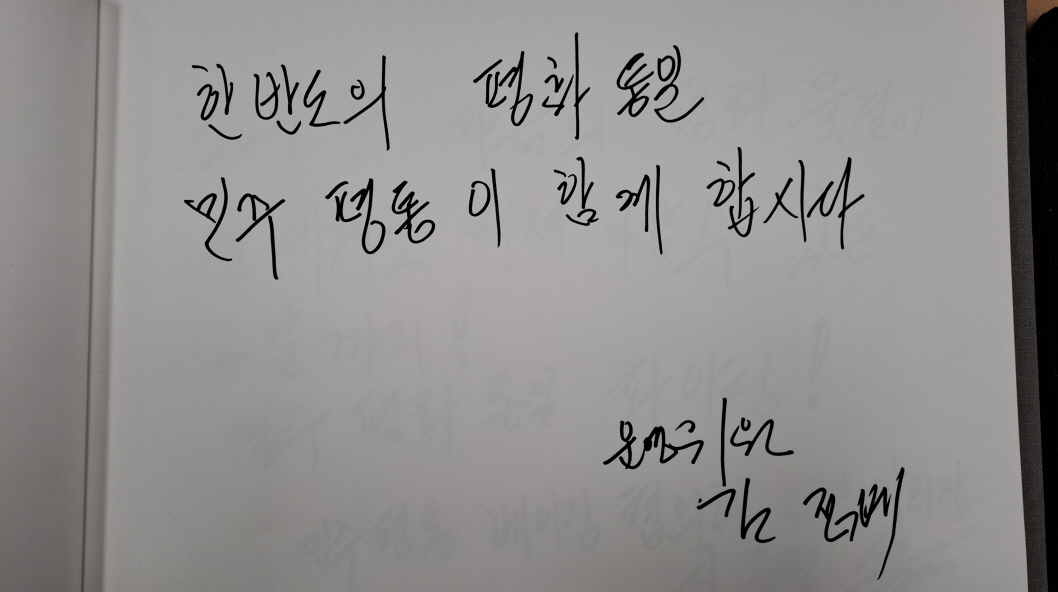 한반도의 평화 통일
민주 평통이 함께 합시다
운영위원
김